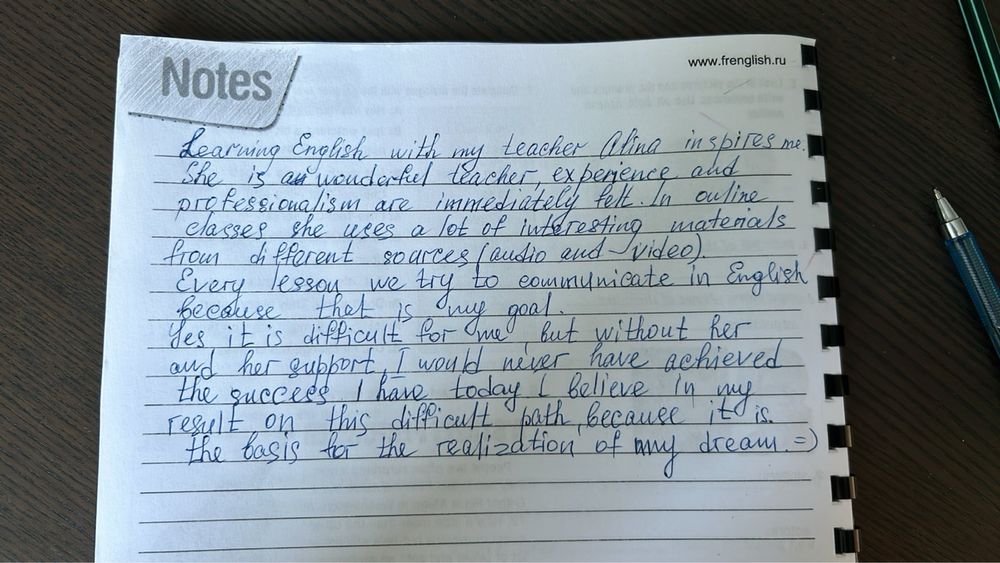 Notes
www.frenglish.ru
Learning English with my teacher Alina inspires me.
She is a wonderful teacher, experience and
professionalism are immediately felt. In online
classes she uses a lot of interesting materials
from different sources (audio and video).
Every lesson we try to communicate in English
because that is my goal.
Yes it is difficult for me, but without her
and her support, I would never have achieved
the success I have today. I believe in my
result on this difficult path, because it is.
the basis for the realization of my dream. =)